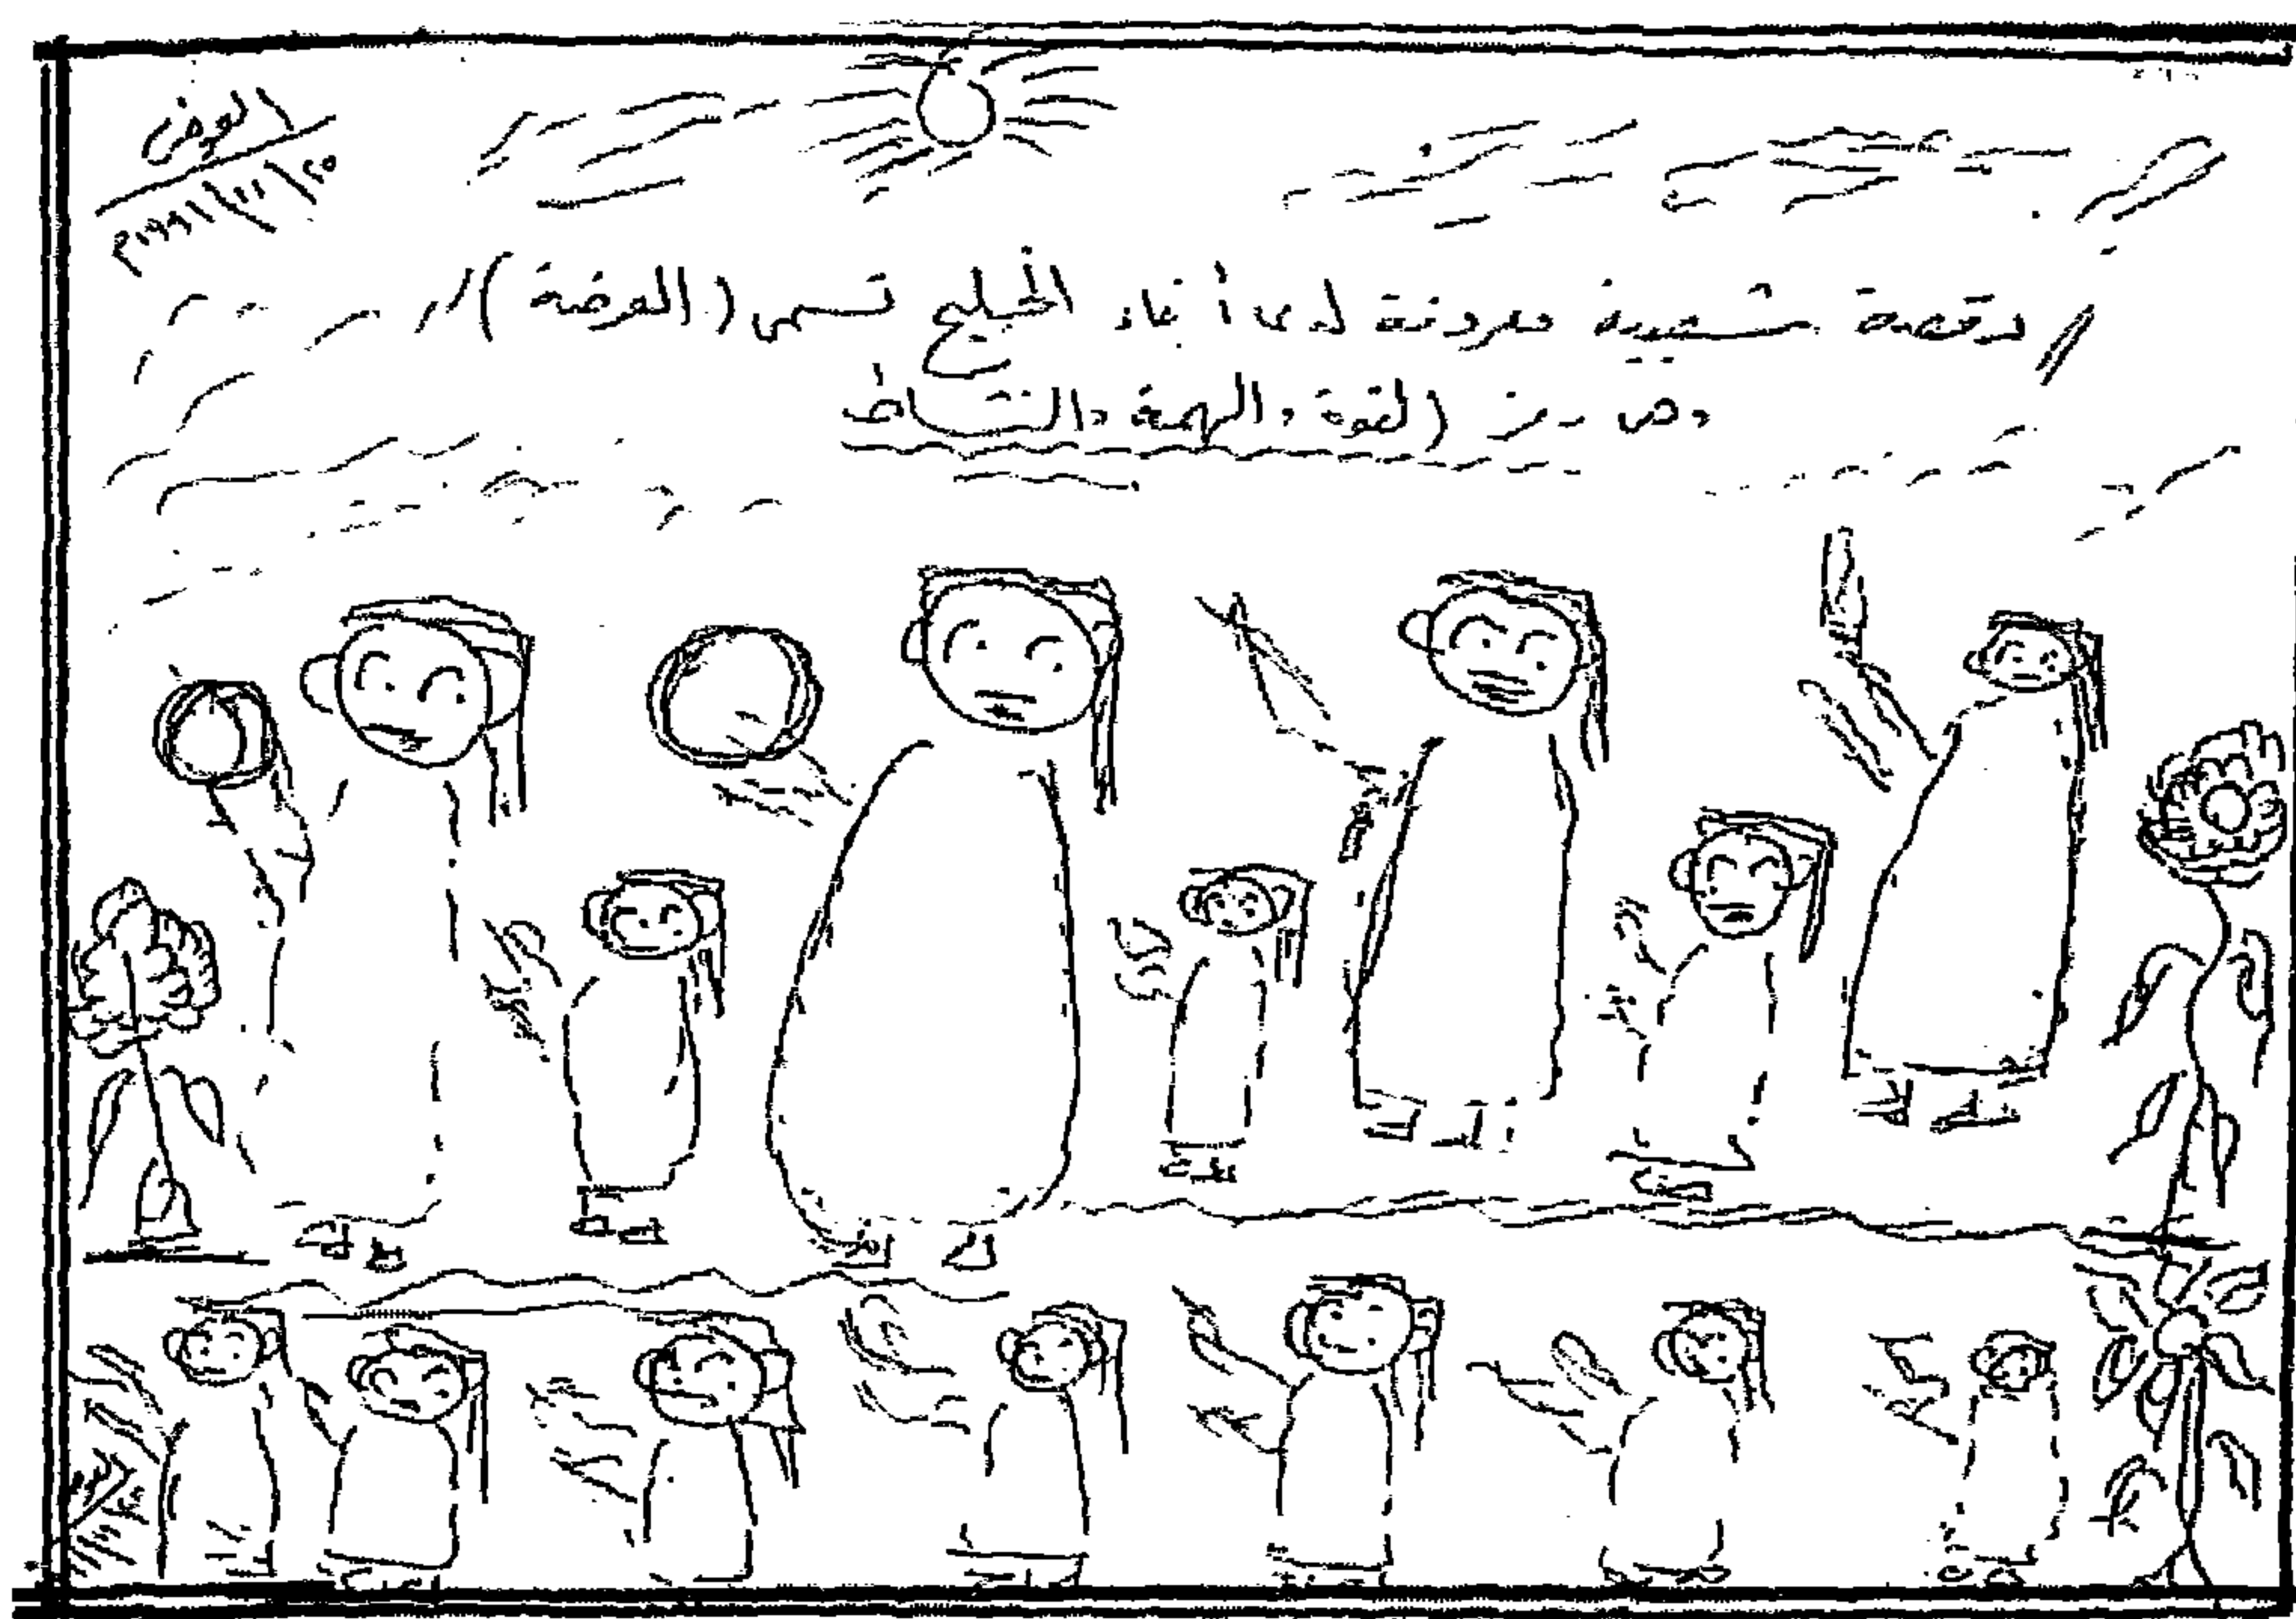 رقصة شعبية معروفة لدى أبناء الخليج تسمى (العرضة)
وهي رمز القوة والهمة والنشاط